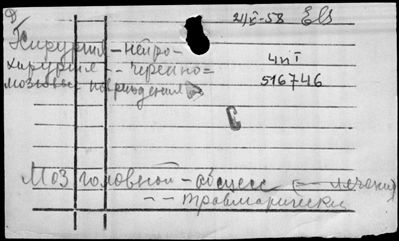 21/X-58 Els
Хирургия - нейро-
хирургия - - черепно=
мозговые повреждения
4п I
516746
С
Мозг головной - абсцесс (- лечение)
- - травматически